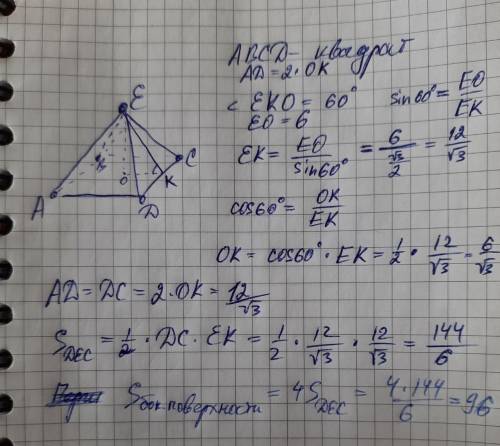 ABCD – квадрат
AD = 2·OK
∠ EKO = 60°   sin60° = EO/EK
EO = 6
EK = EO/sin60° = 6/(√3/2) = 12/√3
cos60° = OK/EK
OK = cos60° · EK = 1/2 · 12/√3 = 6/√3
E
B
C
A
O
K
D
AD = DC = 2·OK = 12/√3
S DEC = 1/2 · DC · EK = 1/2 · 12/√3 · 12/√3 = 144/6
S бок.поверхности = 4S DEC = 4·144/6 = 96